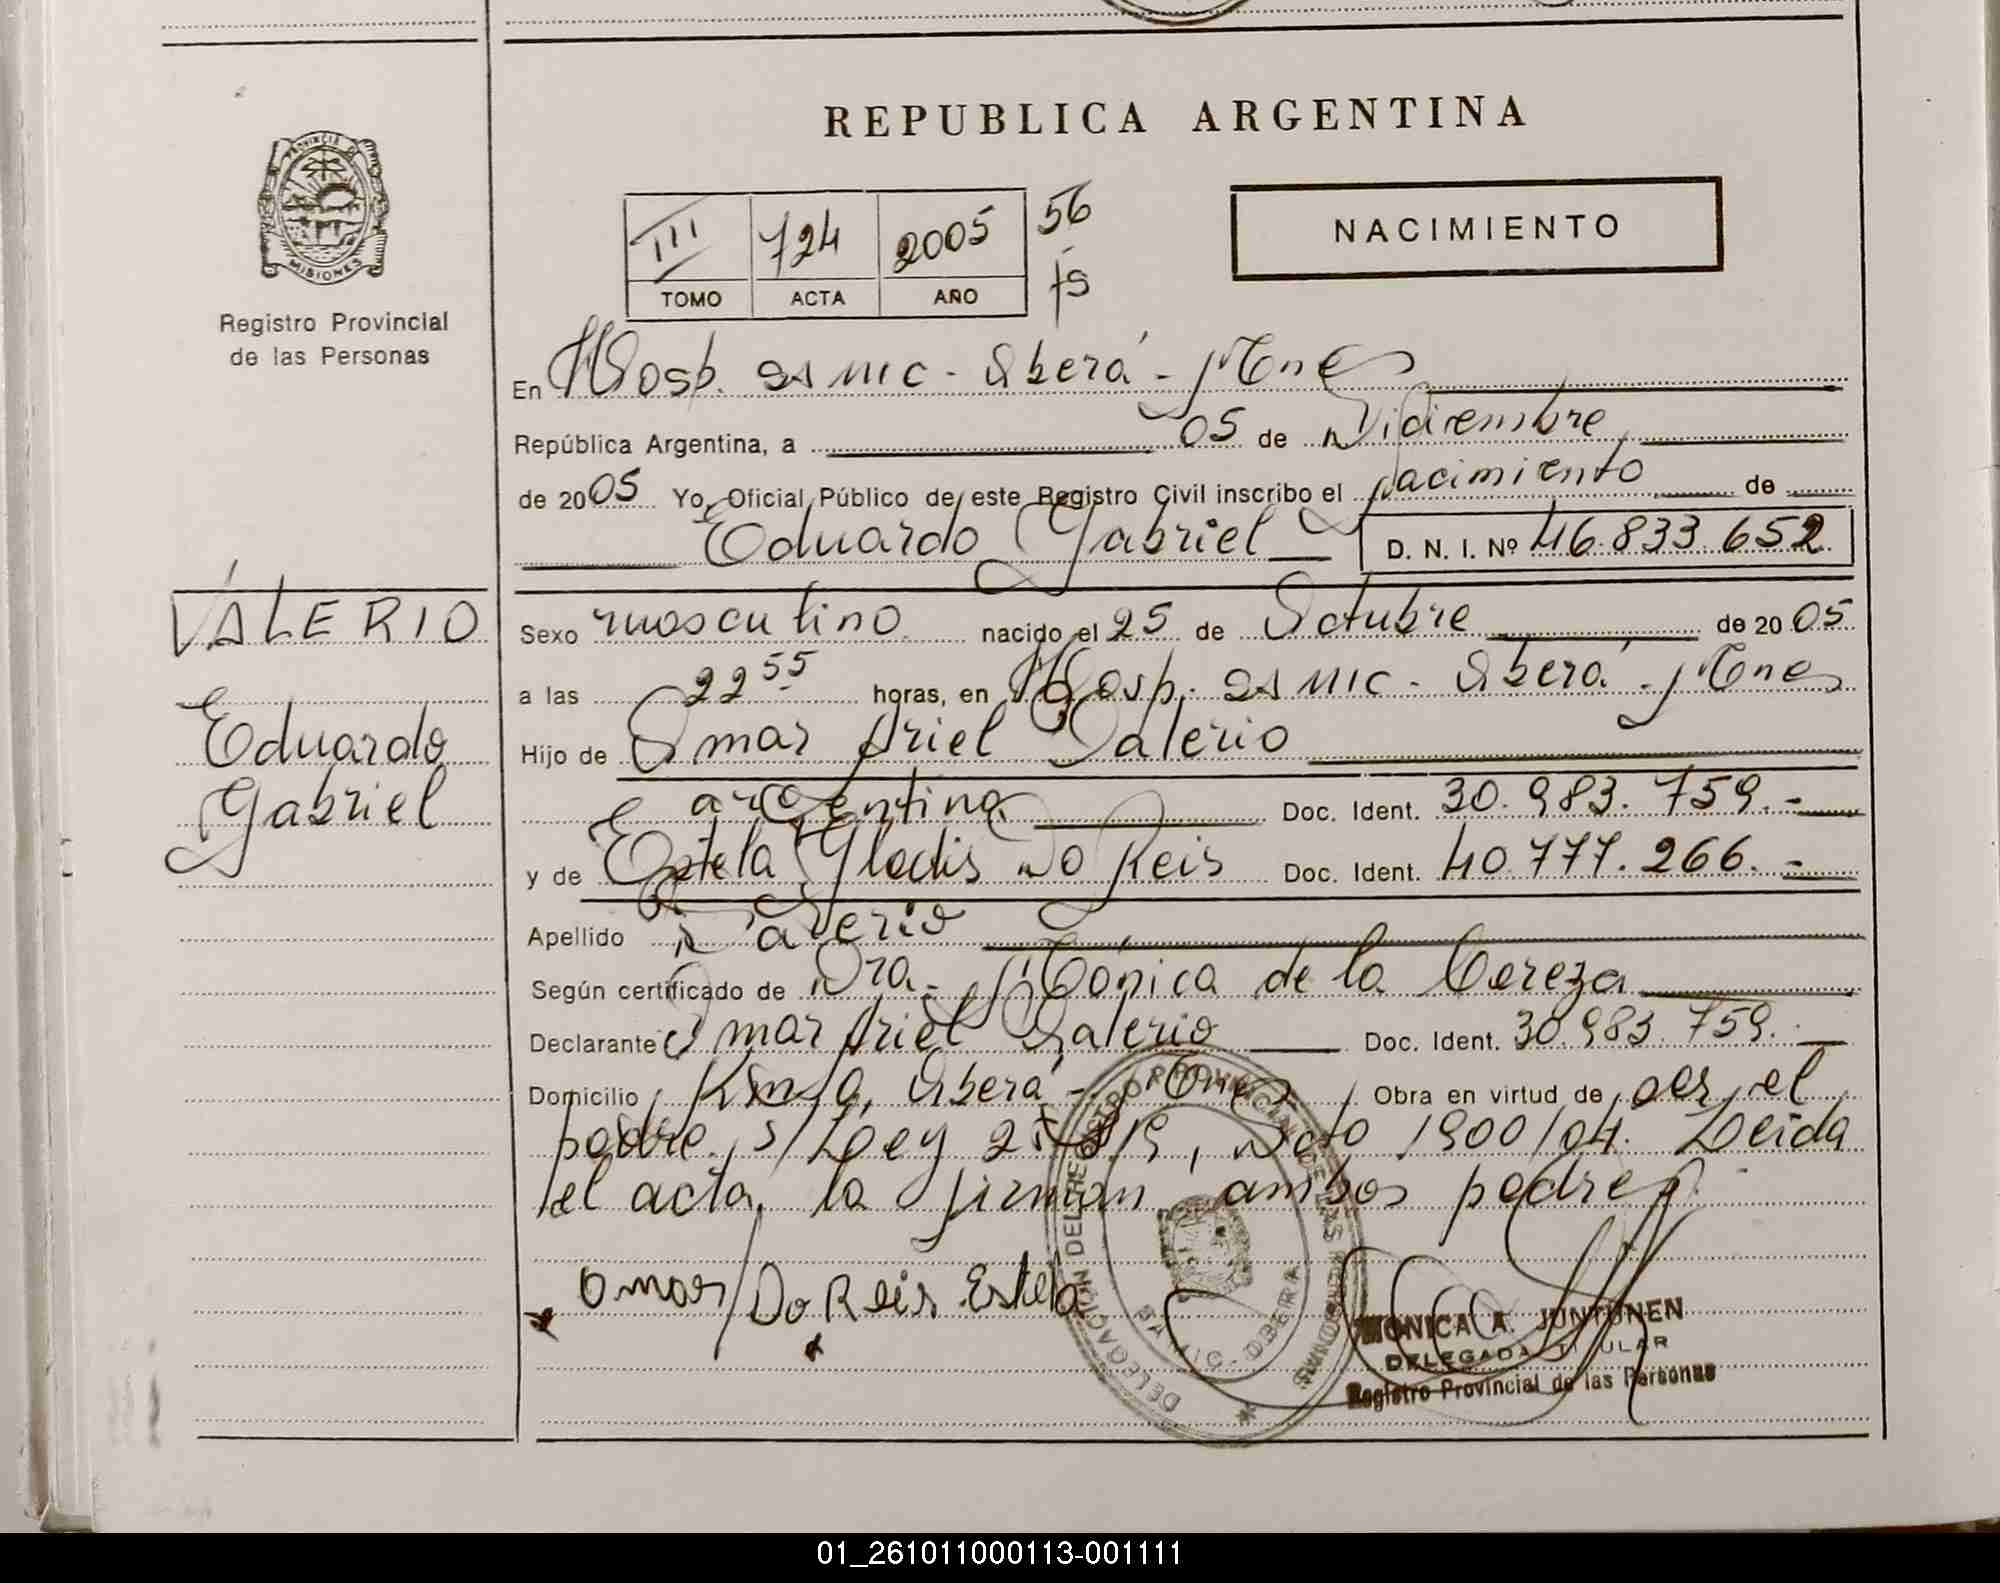 REPUBLICA ARGENTINA
PROVINCIA DE
MISIONES
Registro Provincial
de las Personas
III 724 2005 56
TOMO ACTA AÑO fs
NACIMIENTO
En Hosp. SAMIC - Oberá - Mnes
República Argentina, a 05 de Diciembre
de 2005 Yo, Oficial Público de este Registro Civil inscribo el nacimiento de
Eduardo Gabriel D. N. I. Nº 46.833.652
VALERIO
Eduardo
Gabriel
Sexo masculino nacido el 25 de Octubre de 2005
a las 22 55 horas, en Hosp. SAMIC - Oberá - Mnes
Hijo de Omar Ariel Valerio
argentina Doc. Ident. 30.983.759.-
y de Estela Gladis Do Reis Doc. Ident. 40.777.266.-
Apellido Valerio
Según certificado de Dra. Mónica de la Cereza
Declarante Omar Ariel Valerio Doc. Ident. 30.983.759.-
Domicilio Oberá - Mnes Obra en virtud de ser el
padre s/ Ley Dcto 1900/04. Leída
el acta, la firman ambos padres.
Omar Do Reis Estela
DELEGACIÓN DEL REGISTRO PROVINCIAL DE LAS PERSONAS
SAMIC - OBERA
MONICA A. JUNTUNEN
DELEGADA TITULAR
Registro Provincial de las Personas
01_261011000113-001111